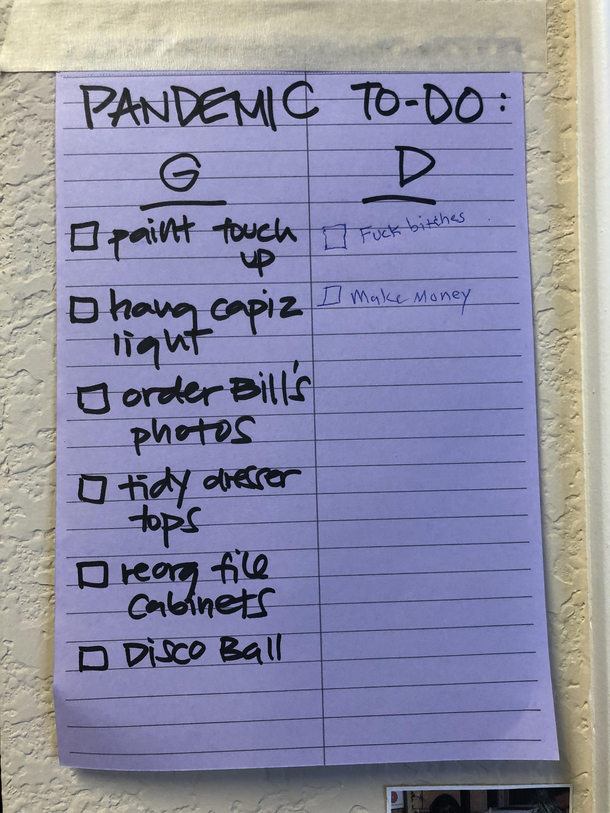 PANDEMIC TO-DO:
G
paint touch
up
hang capiz
light
order Bill's
photos
tidy dresser
tops
reorg file
cabinets
Disco Ball
D
Fuck bitches
Make Money